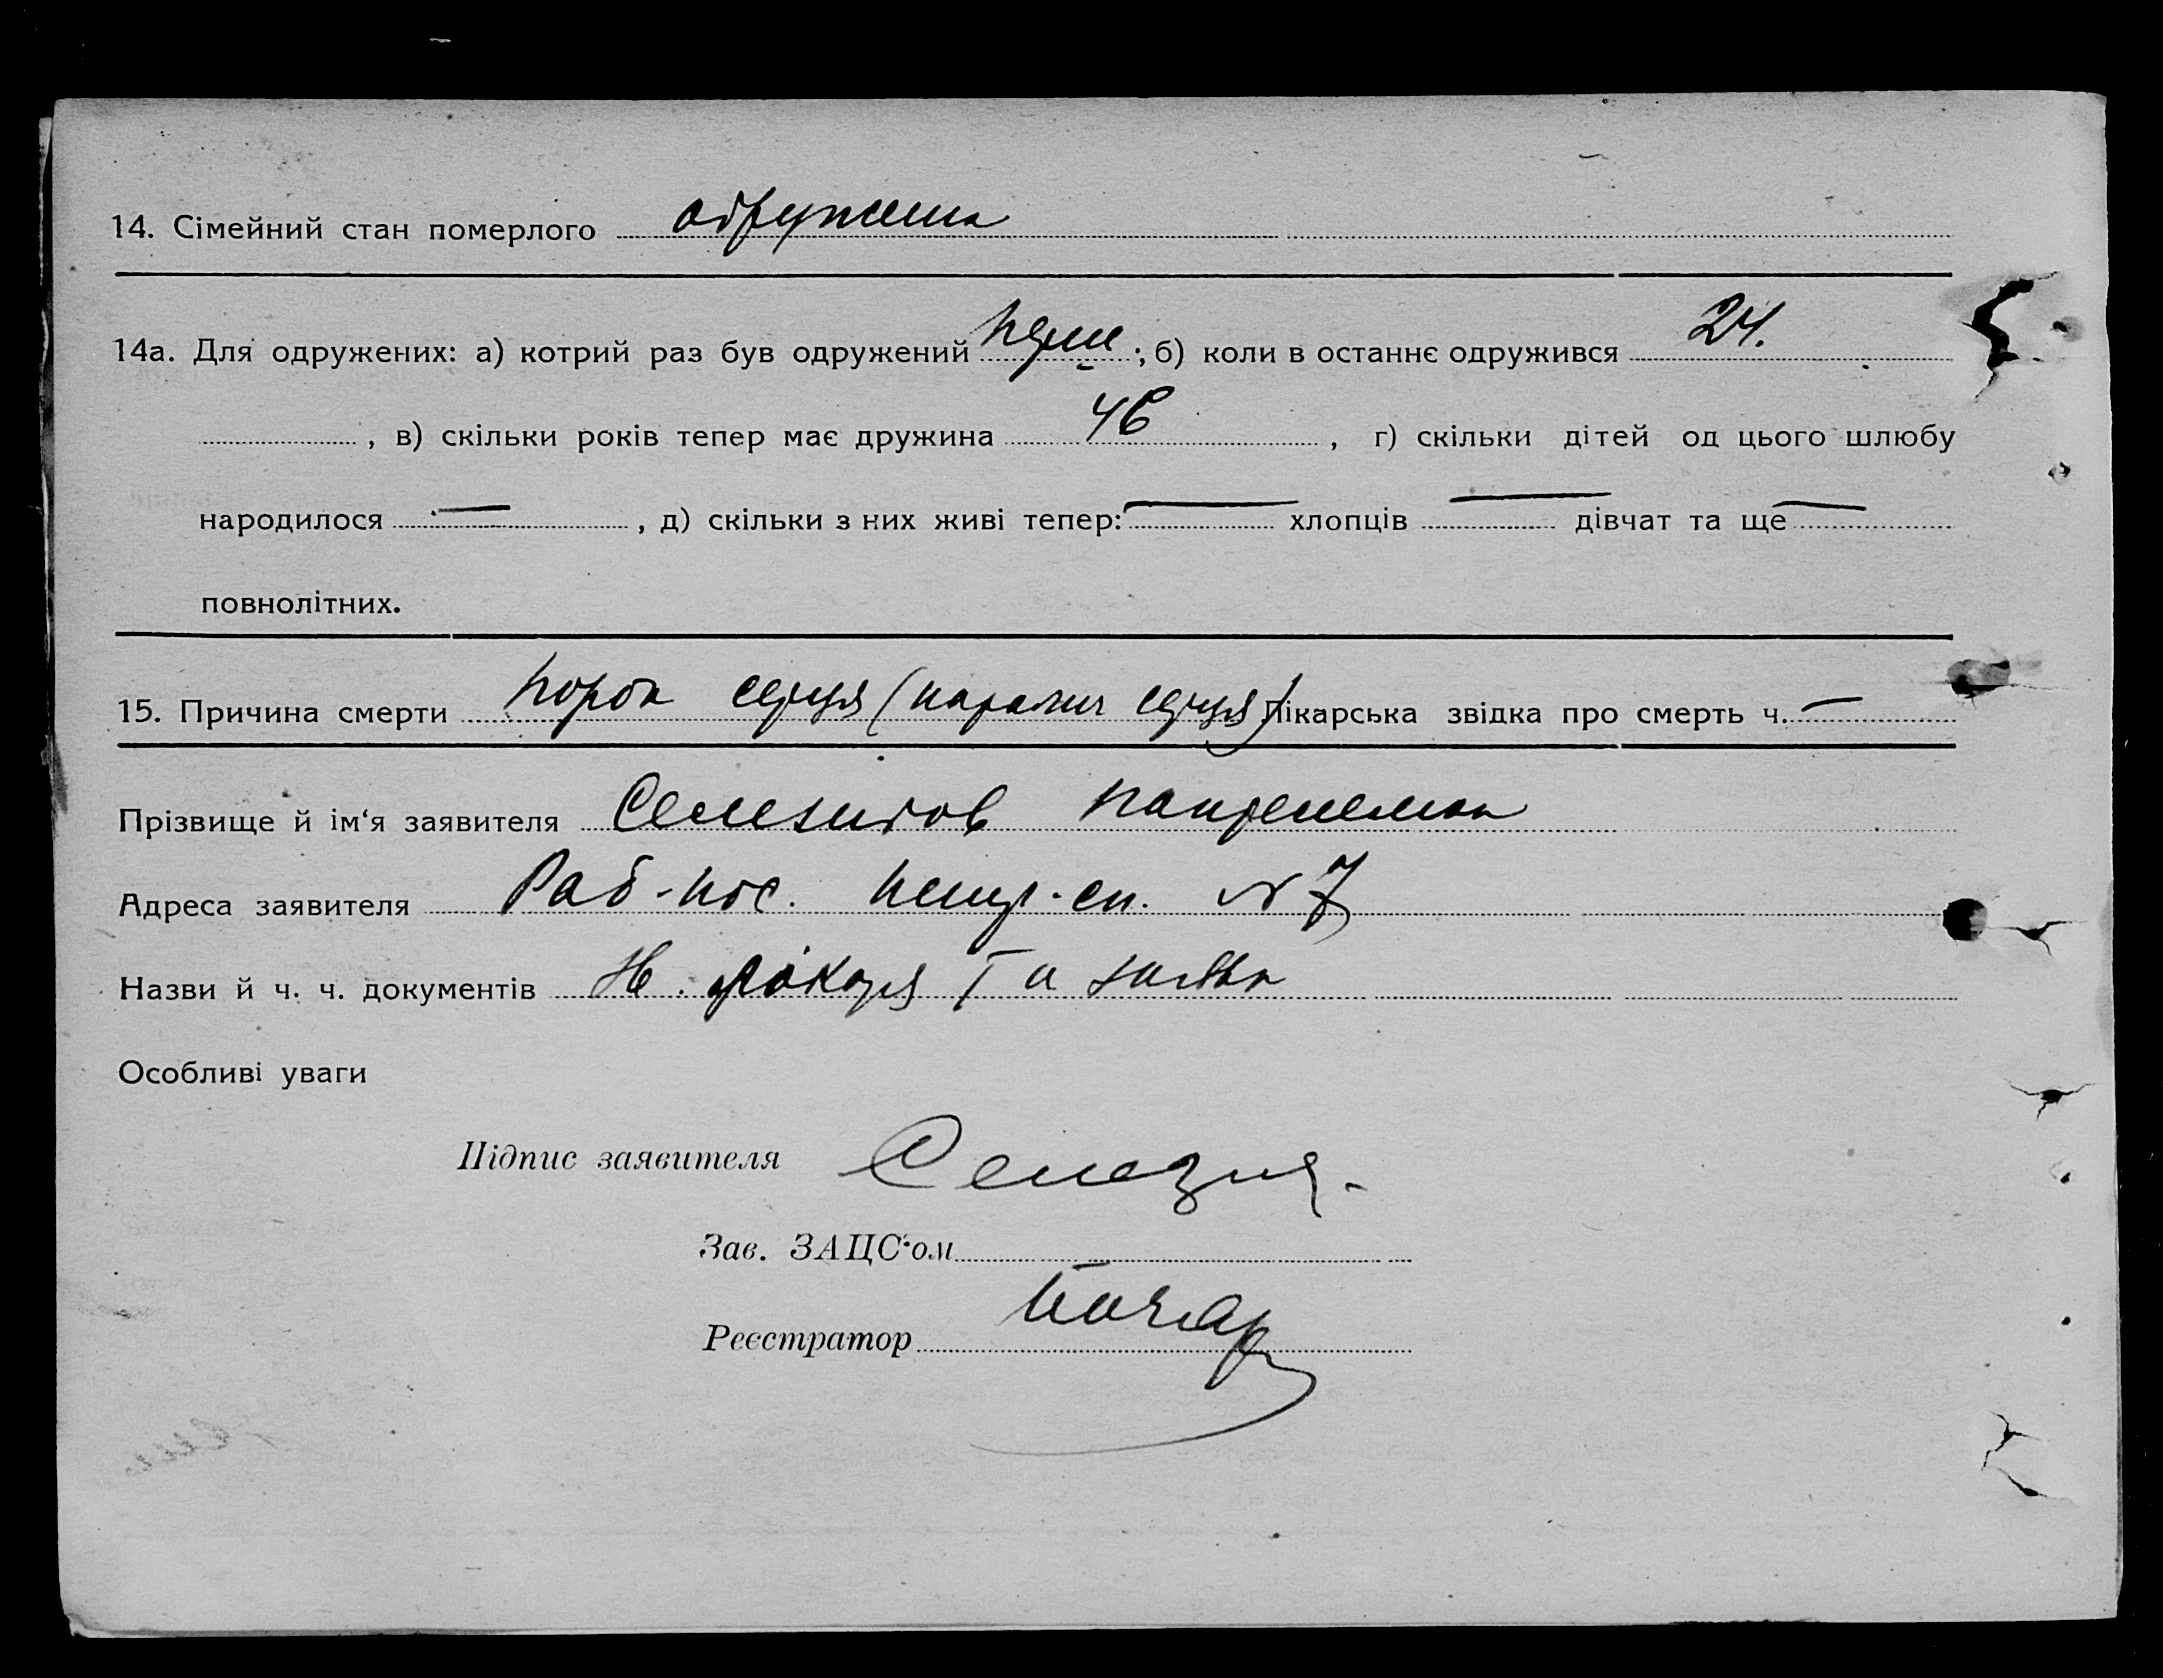 14. Сімейний стан померлого одружена
14а. Для одружених: а) котрий раз був одружений перш ; б) коли в останнє одружився 24.
, в) скільки років тепер має дружина 46 , г) скільки дітей од цього шлюбу
народилося — , д) скільки з них живі тепер: — хлопців — дівчат та ще —
повнолітних.
15. Причина смерти порок серця (паралич серця) Лікарська звідка про смерть ч. —
Прізвище й ім'я заявителя
Адреса заявителя Раб-пос. №7
Назви й ч. ч. документів лікаря та заява
Особливі уваги
Підпис заявителя
Зав. ЗАЦС'ом
Реєстратор